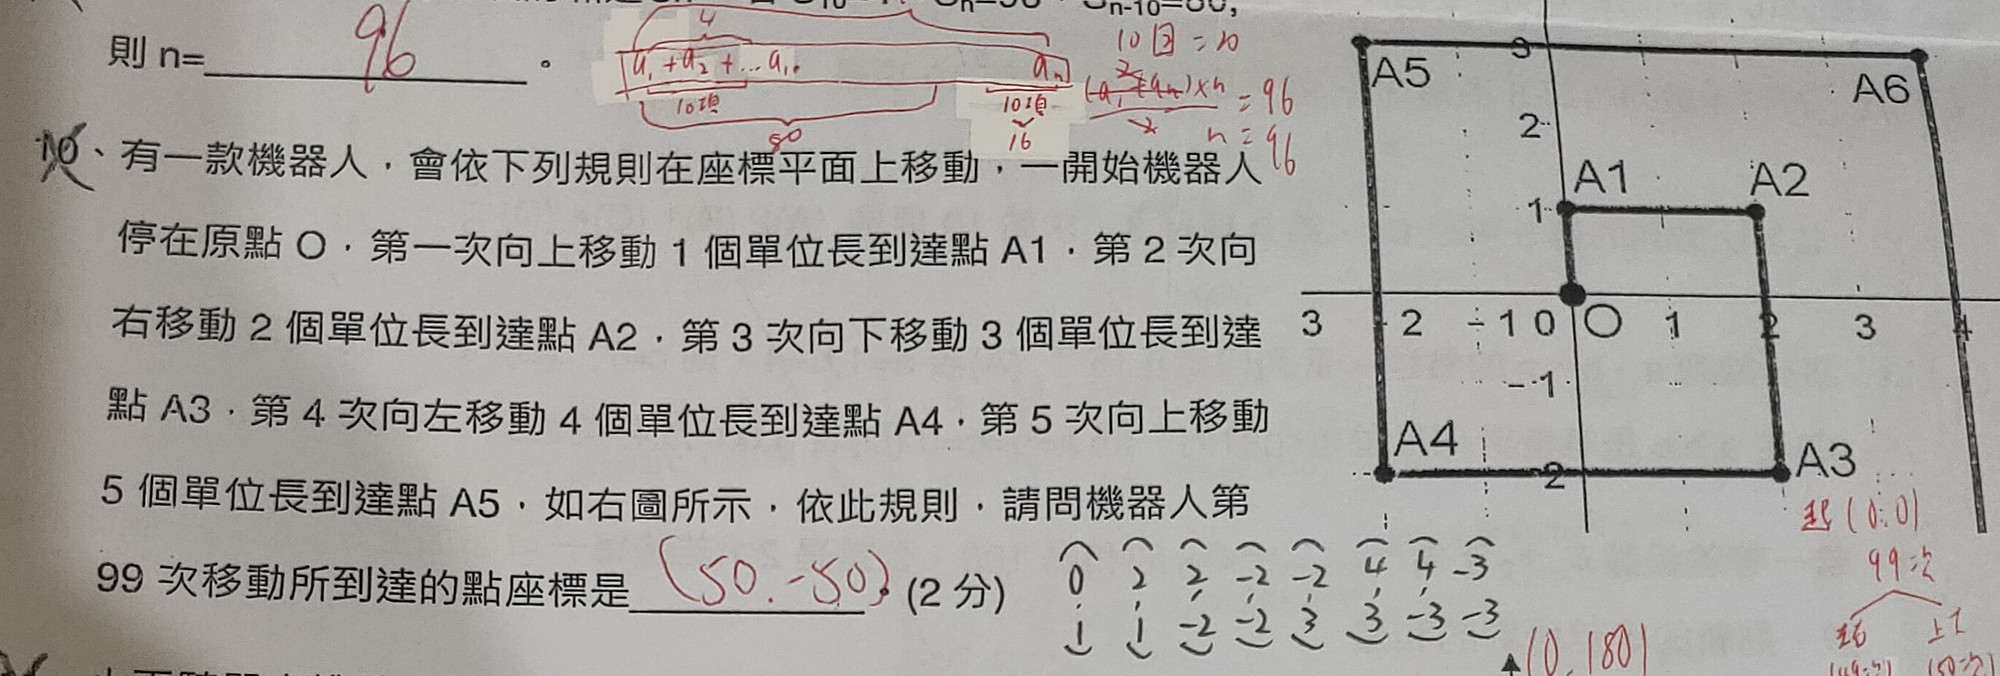 則 n= 96 。
a₁ + a₂ + ... a₁₀ aₙ
10項
10項
80
16
10目 = 20
= 96
n = 96
10、有一款機器人，會依下列規則在座標平面上移動，一開始機器人
停在原點 O，第一次向上移動 1 個單位長到達點 A1，第 2 次向
右移動 2 個單位長到達點 A2，第 3 次向下移動 3 個單位長到達
點 A3，第 4 次向左移動 4 個單位長到達點 A4，第 5 次向上移動
5 個單位長到達點 A5，如右圖所示，依此規則，請問機器人第
99 次移動所到達的點座標是 (50.-50)。(2 分)
A5 3 A6
2
1 A1 A2
3 2 -1 0 O 1 2 3 4
-1
A4 2 A3
起(0,0)
99次
(0,1) (2,1) (2,-2) (-2,-2) (-2,3) (4,3) (4,-3) (-3,-3)
(0,180)